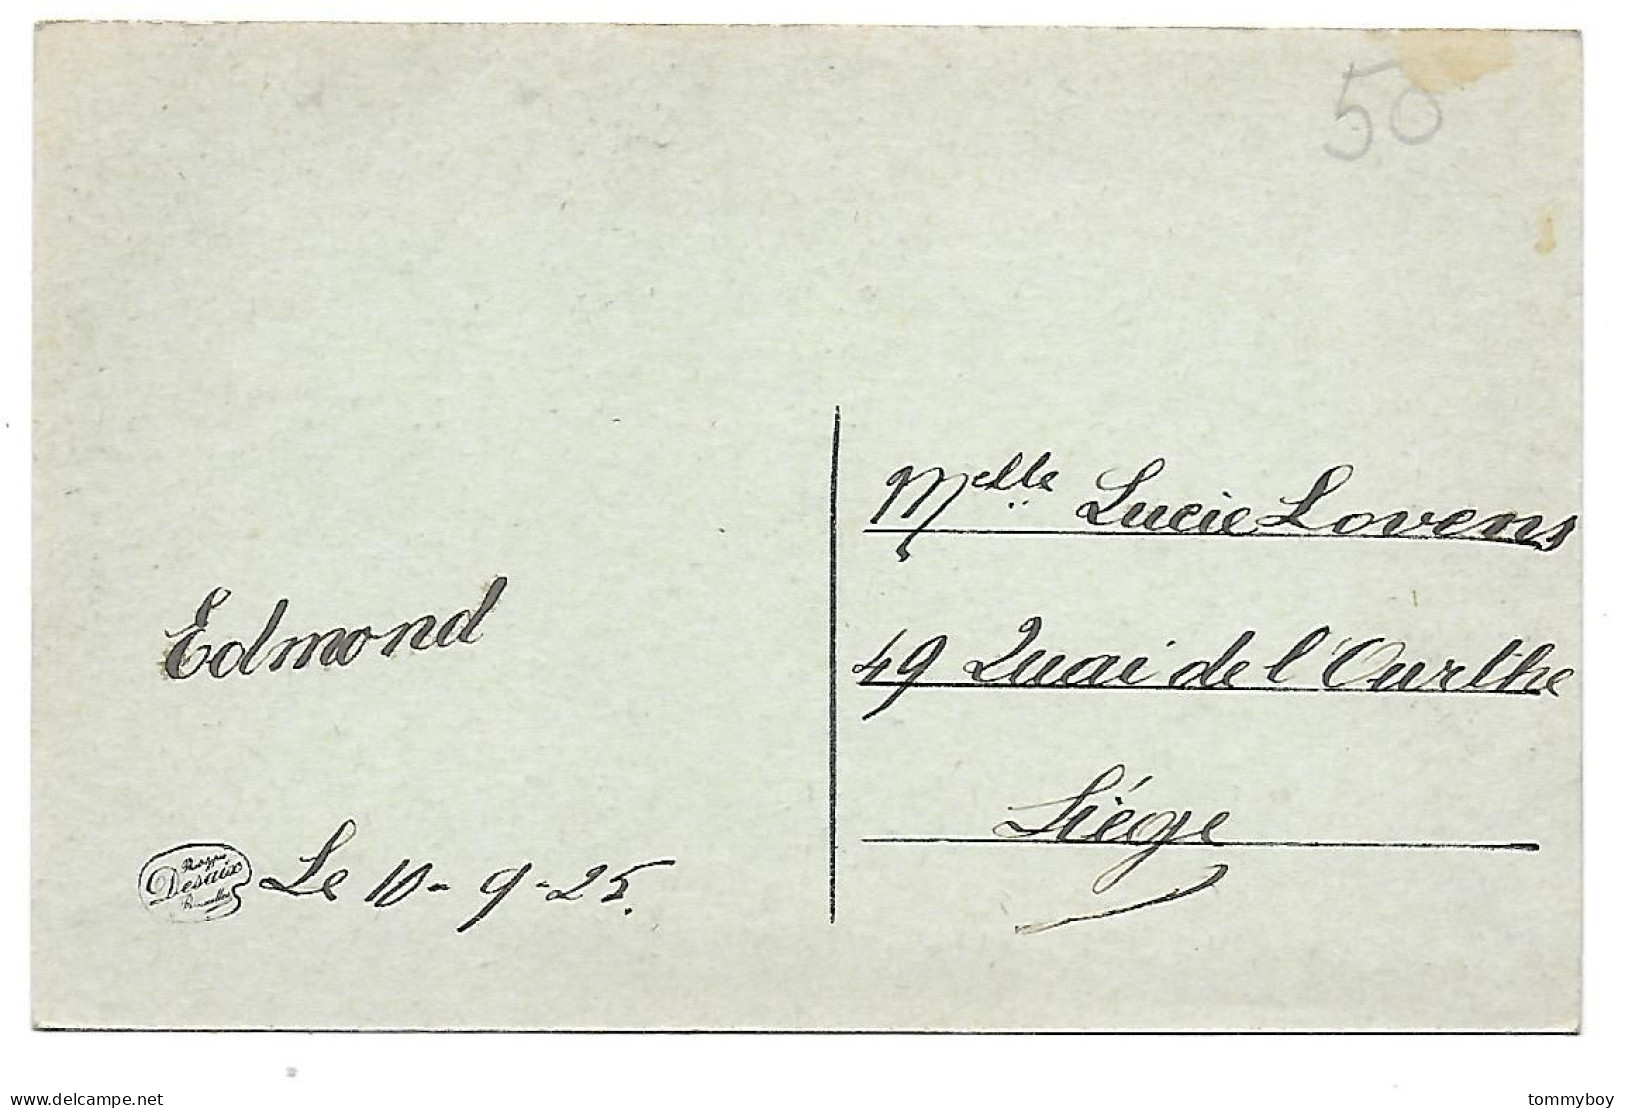 50
Melle Lucie Lovens
49 Quai de l'Ourthe
Liége
Edmond
Desaix
Le 10-9-25.
delcampe.net
tommyboy